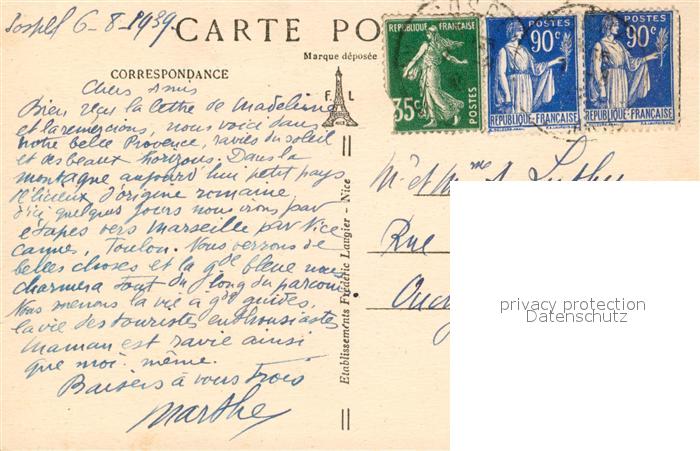 Sospel 6-8-1939.
CARTE PO
Marque déposée
F. L
CORRESPONDANCE
Chers Amis
Bien reçu la lettre de Madeleine
et la remercions, nous voici dans
notre belle Provence, ravies du soleil
et des beaux horizons. Dans la
montagne aujourd'hui petit pays
délicieux d'origine romaine
d'ici quelques jours nous irons par
étapes vers Marseille par Nice
Cannes, Toulon. Nous verrons de
belles choses et la gde bleue nous
charmera tout du long du parcours
Nous menons la vie à gdes guides,
la vie des touristes enthousiastes
Maman est ravie ainsi
que moi-même.
Baisers à vous trois
Marthe
Etablissements Frédéric Laugier - Nice
RÉPUBLIQUE FRANÇAISE
35c
POSTES
POSTES
90c
RÉPUBLIQUE FRANÇAISE
POSTES
90c
RÉPUBLIQUE FRANÇAISE
Mr et Mme
Rue
privacy protection
Datenschutz